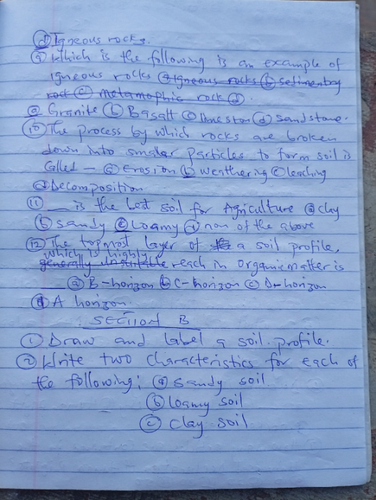 ⓓ Igneous rocks.
⑨ Which is the following is an example of
igneous rocks ⓐ igneous rocks ⓑ sedimentry
rock ⓒ metamophic rock ⓓ
ⓐ Granite ⓑ Basalt ⓒ Limeston ⓓ Sandstone.
⑩ The process by which rocks are broken
down into smaller particles to form soil is
called — ⓐ Erosion ⓑ weathering ⓒ leaching
ⓓ Decomposition
⑪ __ is the best soil for Agriculture ⓐ clay
ⓑ sandy ⓒ loamy ⓓ non of the above
⑫ The topmost layer of a soil profile,
which is highly
generally reach in organic matter is
__ ⓐ B-horizon ⓑ C-horizon ⓒ D-horizon
ⓓ A horizon.
SECTION B
① Draw and label a soil profile.
② Write two characteristics for each of
the following; ⓐ sandy soil
ⓑ loamy soil
ⓒ clay soil